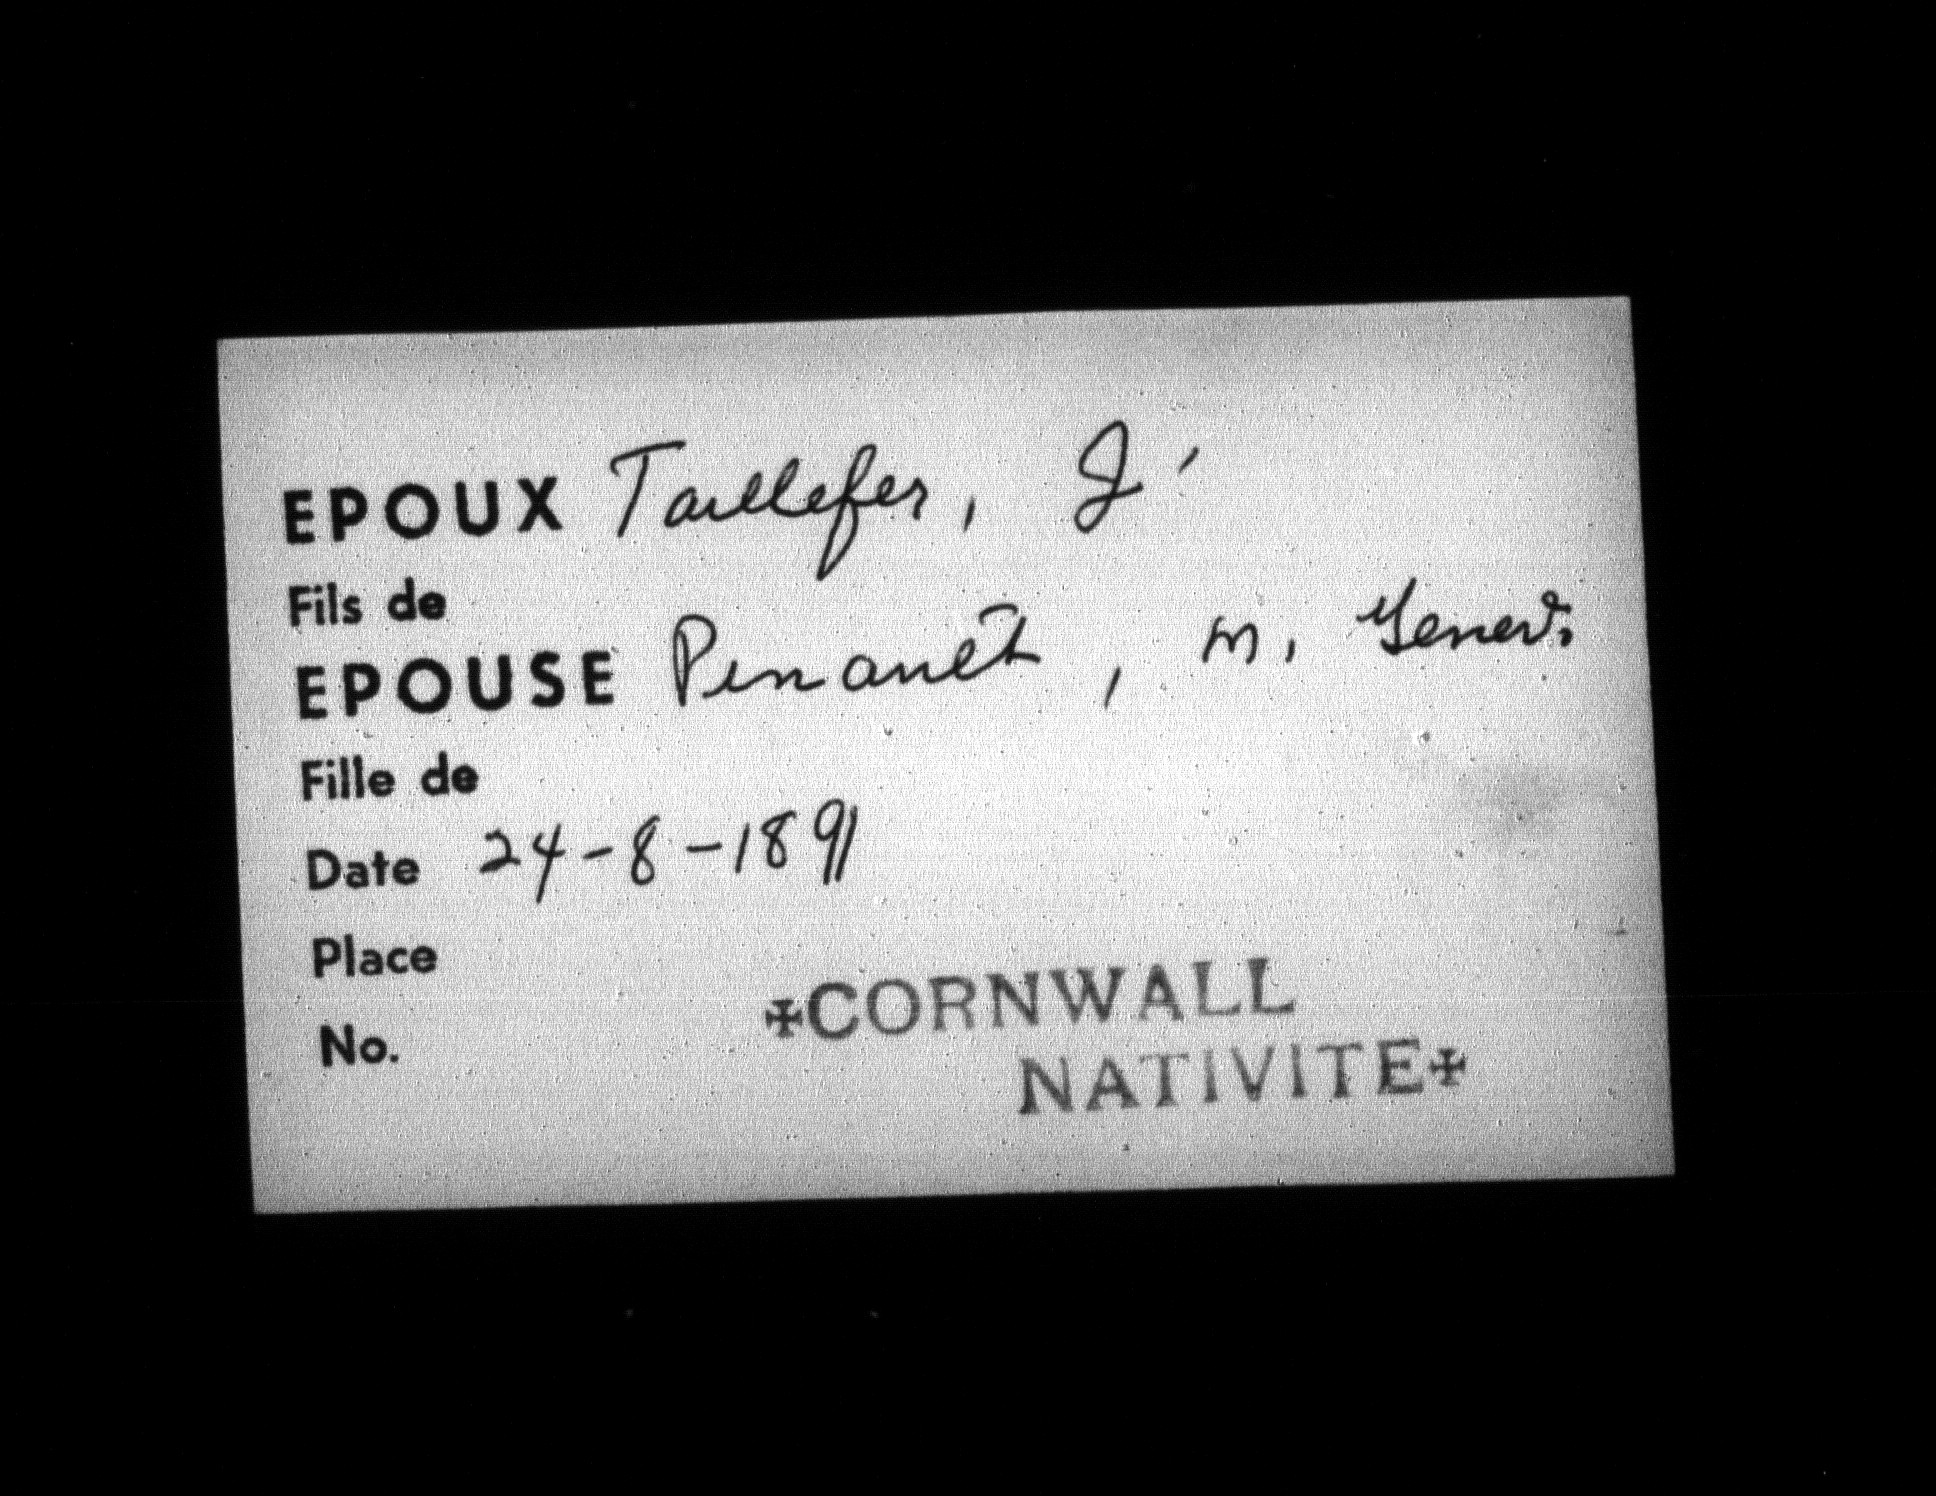 EPOUX Taillefer, J.
Fils de
EPOUSE Pinanet, M. Genev.
Fille de
Date 24-8-1891
Place
No.
✠CORNWALL
NATIVITE✠